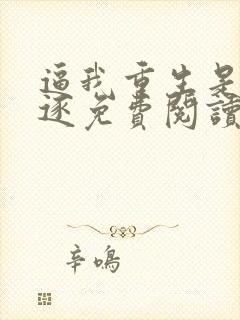 逼我重生是
逐免費閱讀
辛鳴